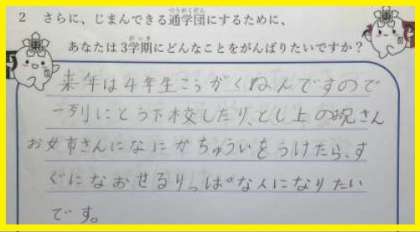 2 さらに、じまんできる通学団にするために、
あなたは3学期にどんなことをがんばりたいですか?
来年は4年生こうがくねんですので
一列にとう下校したり、とし上のお兄さん
お姉さんになにかちゅういをうけたら、す
ぐになおせるりっぱな人になりたい
です。